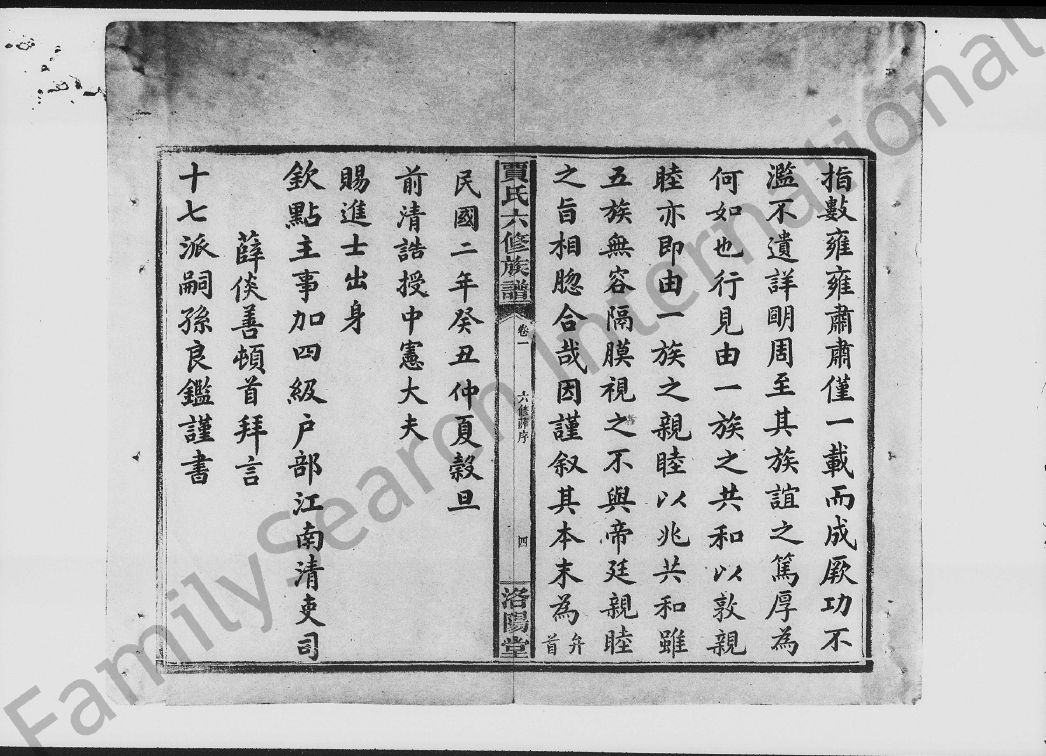 指數雍雍肅肅僅一載而成厥功不
濫不遺詳明周至其族誼之篤厚為
何如也行見由一族之共和以敦親
睦亦即由一族之親睦以兆共和雖
五族無容隔膜視之不與帝廷親睦
之旨相脗合哉因謹叙其本末為弁首
賈氏六修族譜
卷一
六修薛序
四
洛陽堂
民國二年癸丑仲夏穀旦
前清誥授中憲大夫
賜進士出身
欽點主事加四級户部江南清吏司
薛倓善頓首拜言
十七派嗣孫良鑑謹書
FamilySearch International